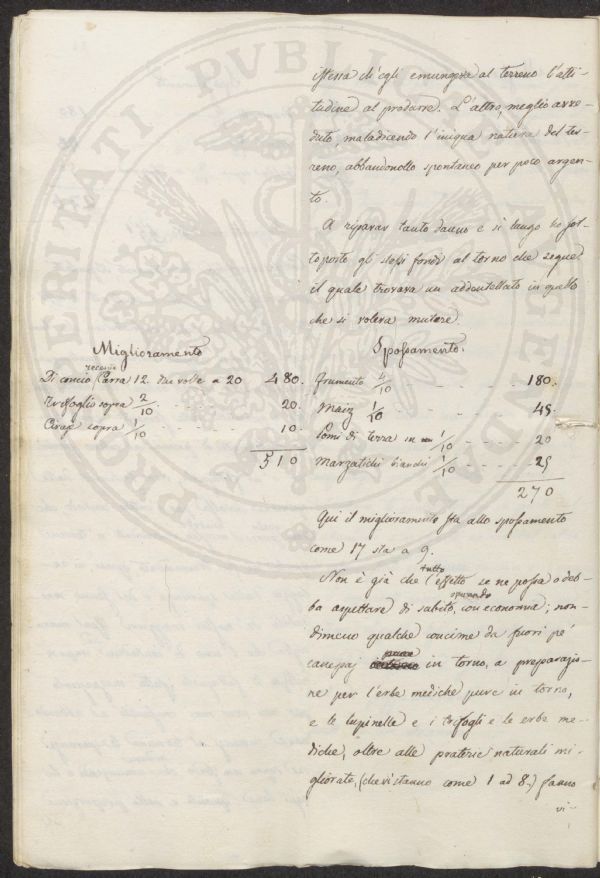 istessa ch'egli emungere al terreno l'atti-
tudine al produrre. L'altro, meglio avve-
duto, maladicendo l'iniqua natura del ter-
reno, abbandonollo spontaneo per poco argen-
to.
A riparar tanto danno e sì lungo ho sot-
toposto gli stessi fondi al torno che segue:
il quale trovava un addentellato in quello
che si voleva mutare.
Miglioramento
recenzo
Di concio Carra 12. due volte a 20 480.
Trifoglio sopra 2/10 20.
Cirage sopra 1/10 10.
510
Spossamento.
Frumento 4/10 180.
Maiz 1/10 45.
Pomi di terra in 1/10 20
Marzatichi bianchi 1/10 25
270
Qui il miglioramento sta allo spossamento
come 17 sta a 9.
tutto
Non è già che l'effetto se ne possa o deb-
sperando
ba aspettare di subito, con economia; non-
dimeno qualche concime da fuori pe'
canepaj in torno, a preparazio-
ne per l'erbe mediche pure in torno,
e le lupinelle e i trifogli e le erbe me-
diche, oltre alle praterie naturali mi-
gliorate, (che vi stanno come 1 ad 8.) fanno
vi-
PVBLICAE